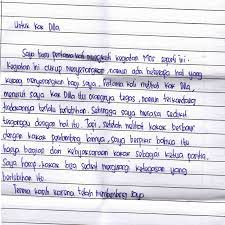 Untuk kak Dlla.
Saya baru pertama kali mengikuti kegiatan Mos seperti ini.
Kegiatan ini cukup menyenangkan, namun ada beberapa hal yang
kurang menyenangkan bagi saya, pertama kali melihat kak Dlla,
menurut saya kak Dlla itu orangnya tegas, namun terkadang
tindakannya terlalu berlebihan. Sehingga saya merasa sedikit
terganggu dengan hal itu. Tapi, setelah melihat kakak berbaur
dengan kakak pembimbing lainnya, saya berpikir bahwa itu
hanya bagian dari kerja kakak sebagai ketua panitia,
Saya harap, kakak bisa sedikit mengurangi ketegasan yang
berlebihan itu.
Terima kasih karena telah membimbing saya